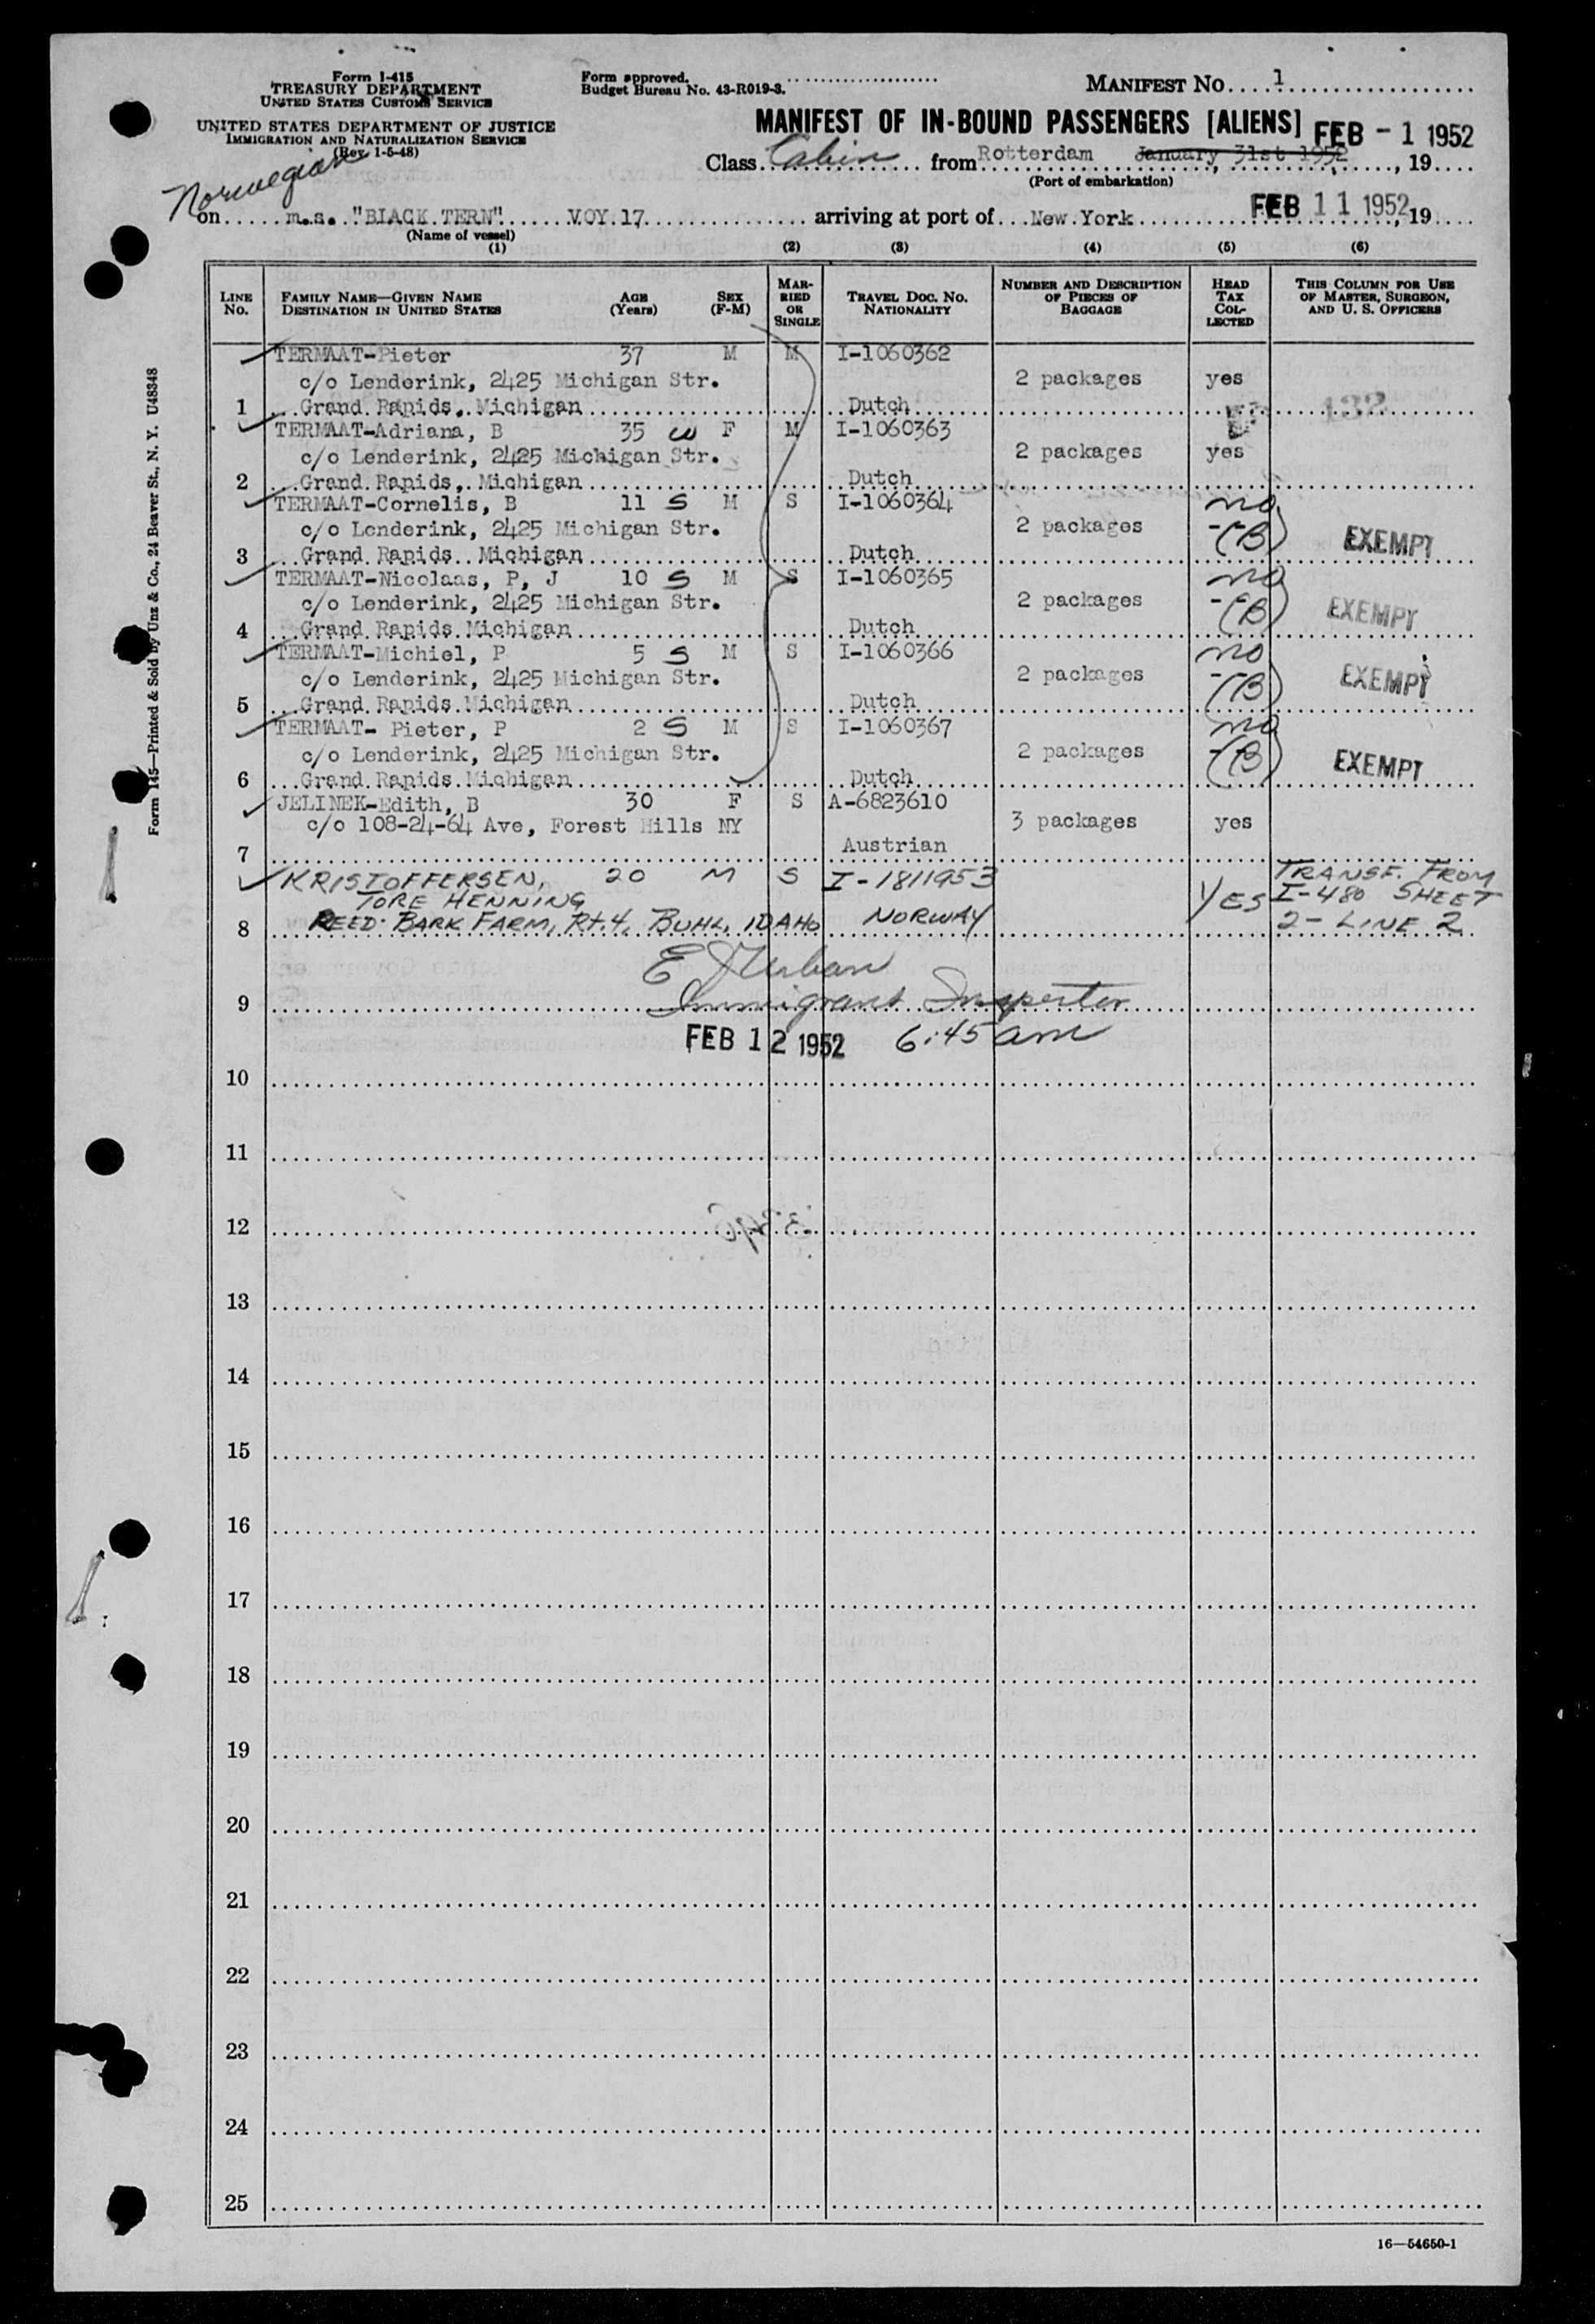 Form I-415
TREASURY DEPARTMENT
UNITED STATES CUSTOMS SERVICE
UNITED STATES DEPARTMENT OF JUSTICE
IMMIGRATION AND NATURALIZATION SERVICE
(Rev. 1-5-48)
Form approved.
Budget Bureau No. 43-R019-3.
MANIFEST No. 1
MANIFEST OF IN-BOUND PASSENGERS [ALIENS] FEB - 1 1952
Class Cabin from Rotterdam January 31st 1952, 19
(Port of embarkation)
Norwegian
on m.s. "BLACK TERN" VOY.17 arriving at port of New York FEB 11 1952, 19
(Name of vessel)
(1) (2) (3) (4) (5) (6)
LINE No. FAMILY NAME—GIVEN NAME DESTINATION IN UNITED STATES AGE (Years) SEX (F-M) MARRIED OR SINGLE TRAVEL DOC. NO. NATIONALITY NUMBER AND DESCRIPTION OF PIECES OF BAGGAGE HEAD TAX COLLECTED THIS COLUMN FOR USE OF MASTER, SURGEON, AND U. S. OFFICERS
TERMAAT-Pieter 37 M M I-1060362
c/o Lenderink, 2425 Michigan Str. 2 packages yes
1 Grand Rapids, Michigan Dutch
TERMAAT-Adriana, B 35 W F M I-1060363
c/o Lenderink, 2425 Michigan Str. 2 packages yes
2 Grand Rapids, Michigan Dutch
TERMAAT-Cornelis, B 11 S M S I-1060364 no
c/o Lenderink, 2425 Michigan Str. 2 packages (B) EXEMPT
3 Grand Rapids Michigan Dutch
TERMAAT-Nicolaas, P, J 10 S M S I-1060365 no
c/o Lenderink, 2425 Michigan Str. 2 packages (B) EXEMPT
4 Grand Rapids Michigan Dutch
TERMAAT-Michiel, P 5 S M S I-1060366 no
c/o Lenderink, 2425 Michigan Str. 2 packages (B) EXEMPT
5 Grand Rapids Michigan Dutch
TERMAAT- Pieter, P 2 S M S I-1060367 no
c/o Lenderink, 2425 Michigan Str. 2 packages (B) EXEMPT
6 Grand Rapids Michigan Dutch
JELINEK-Edith, B 30 F S A-6823610
c/o 108-24-64 Ave, Forest Hills NY 3 packages yes
7 Austrian
KRISTOFFERSEN, 20 M S I-1811953 TRANSF. FROM
TORE HENNING YES I-480 SHEET
8 REED BARK FARM, Rt. 4, BUHL, IDAHO NORWAY 2- LINE 2
E J Urban
9 Immigrant Inspector
FEB 12 1952 6:45 am
10
11
12
13
14
15
16
17
18
19
20
21
22
23
24
25
16—54650-1
Form 145—Printed & Sold by Unz & Co., 24 Beaver St., N. Y. U48348